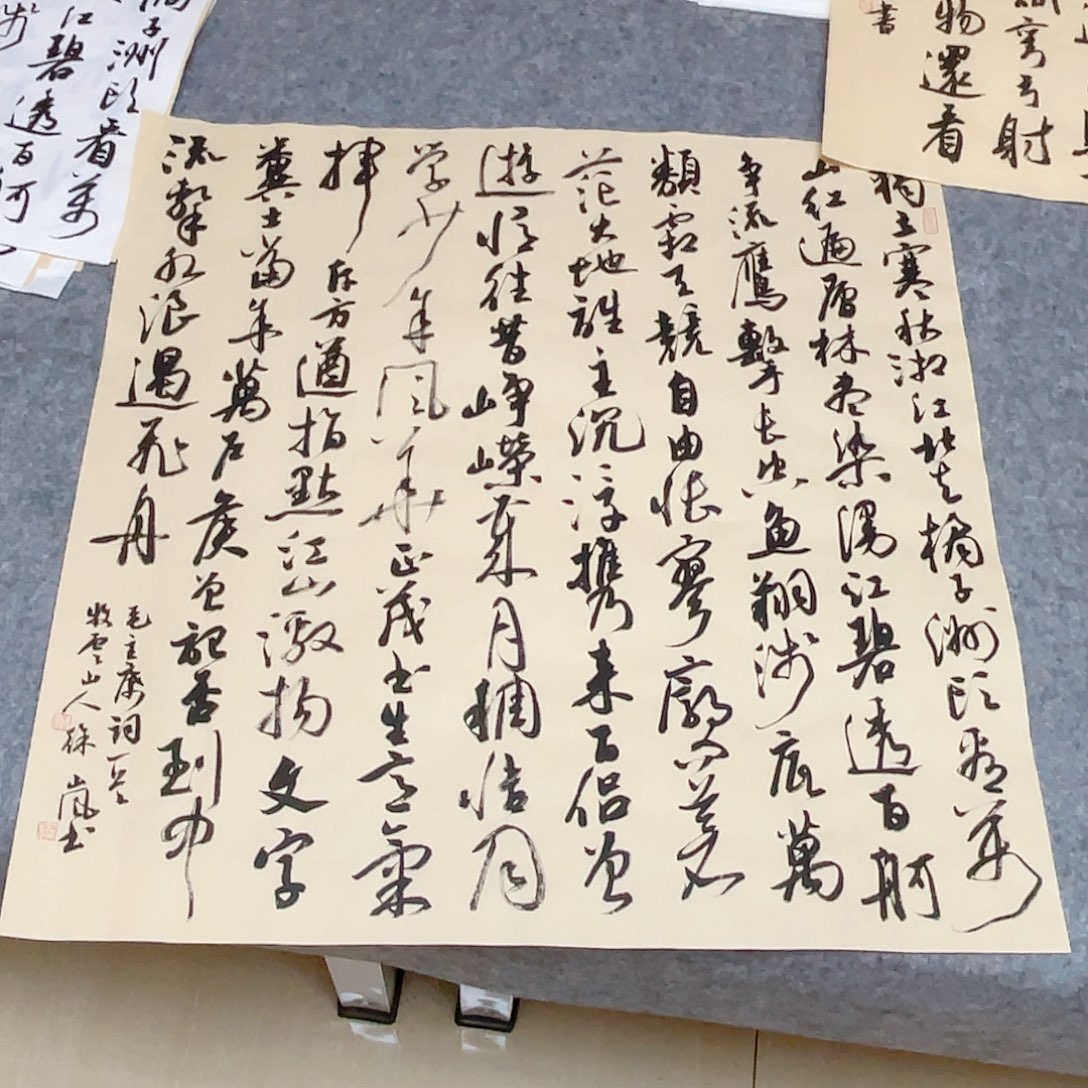 獨立寒秋湘江北去橘子洲頭看萬
山红遍層林盡染漫江碧透百舸
争流鷹擊長空魚翔淺底萬
類霜天競自由悵寥廓问蒼
茫大地誰主沉浮攜來百侣曾
遊憶往昔崢嶸歲月稠恰同
学少年風华正茂书生意氣
揮斥方遒指點江山激揚文字
糞土當年萬戶矦曾記否到中
流擊水浪遏飛舟
毛主席词一首
牧雲山人徐嵐书
射
物還看
書
子洲頭看萬
江碧透百舸
淺